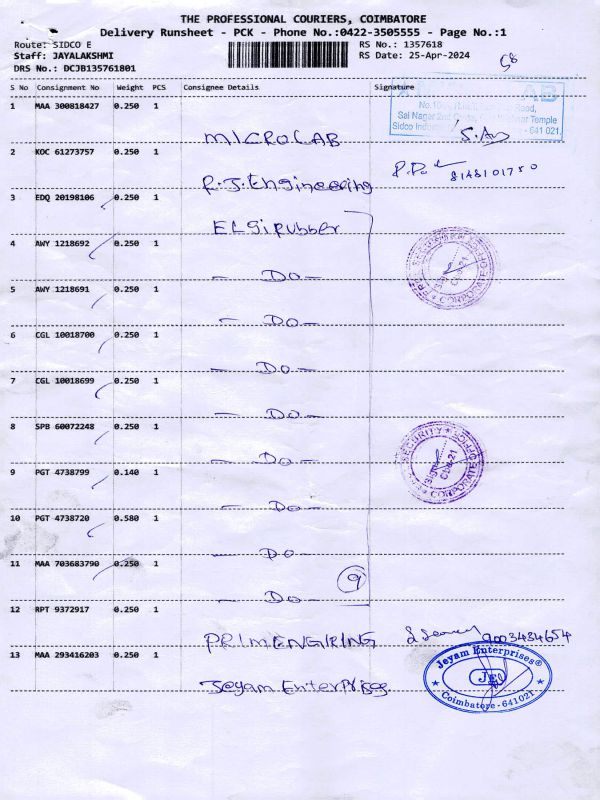 THE PROFESSIONAL COURIERS, COIMBATORE
Delivery Runsheet - PCK - Phone No.:0422-3505555 - Page No.:1
Route: SIDCO E
RS No.: 1357618
Staff: JAYALAKSHMI
RS Date: 25-Apr-2024
58
DRS No.: DCJB135761801
S No Consignment No Weight PCS Consignee Details Signature
1 MAA 300818427 0.250 1
MICROLAB
Sai Nagar 2nd Temple
Sidco - 641 021.
2 KOC 61273757 0.250 1
R.J. Engineering
3 EDQ 20198106 0.250 1
ELGiRubber
4 AWY 1218692 0.250 1
- Do -
5 AWY 1218691 0.250 1
- Do -
6 CGL 10018700 0.250 1
- Do -
7 CGL 10018699 0.250 1
- Do -
8 SPB 60072248 0.250 1
- Do -
SECURITY
CORPORATE OFFICE
9 PGT 4738799 0.140 1
- Do -
10 PGT 4738720 0.580 1
- Do -
11 MAA 703683790 0.250 1
- Do -
9
12 RPT 9372917 0.250 1
PRIMENGIRING
9003484654
13 MAA 293416203 0.250 1
Jeyam Enterprises
Jeyam Enterprises®
JE
Coimbatore - 641021